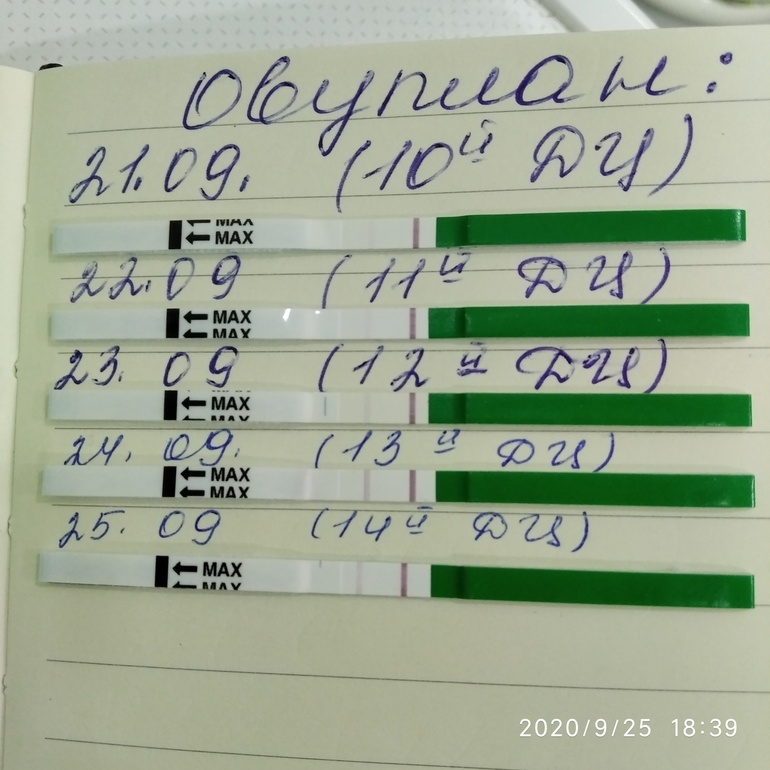 Овуплан:
21.09. (10й ДЦ)
MAX
MAX
22.09 (11й ДЦ)
MAX
MAX
23.09 (12й ДЦ)
MAX
24.09. (13й ДЦ)
MAX
MAX
25.09 (14й ДЦ)
MAX
MAX
2020/9/25 18:39